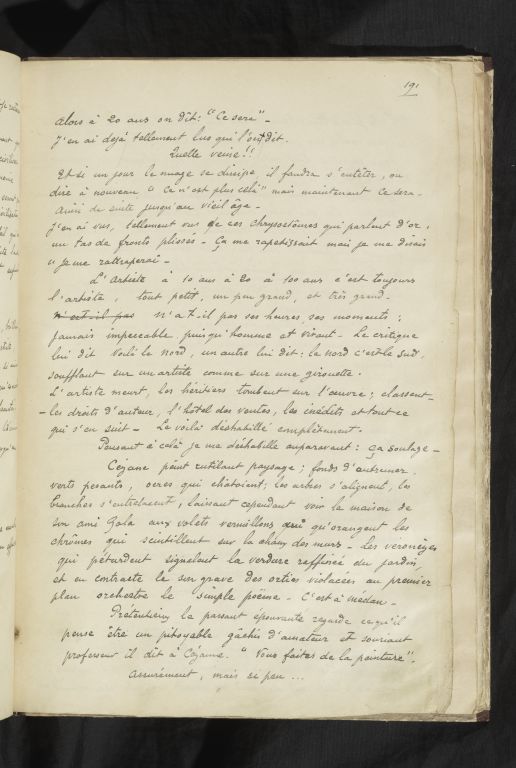 191
Alors à 20 ans on dit: "Ce sera" -
J'en ai dejà tellement lus qui l'ont dit.
Quelle veine!!
Et si un jour le nuage se dissipe il faudra s'entêter, ou
dire à nouveau "Ce n'est plus celà" mais maintenant ce sera -
Ainsi de suite jusqu'au vieil âge -
J'en ai vus, tellement vus de ces chrysostômes qui parlent d'or,
un tas de fronts plissés - Ça me rapetissait mais je me disais
"Je me rattraperai -
L'Artiste à 10 ans à 20 à 100 ans c'est toujours
l'artiste, tout petit, un peu grand, et très grand -
n'est-il pas n'a t-il pas ses heures, ses moments;
Jamais impeccable puisqu'homme et vivant - Le critique
lui dit voilà le nord, un autre lui dit: le nord c'est le Sud,
soufflant sur un artiste comme sur une girouette.
L'artiste meurt, les héritiers tombent sur l'œuvre; classent
- les droits d'auteur, l'hôtel des ventes, les inédits et tout ce
qui s'en suit - Le voilà déshabillé complètement.
Pensant à celà je me déshabille auparavant: ça soulage -
Cézane peint rutilant paysage; fonds d'outremer
verts pesants, ocres qui châtoient; les arbres s'alignent, les
branches s'entrelacent, laissant cependant voir la maison de
son ami Zola aux volets vermillons qu'orangent les
chrômes qui scintillent sur la chaux des murs - Les véronèzes
qui pétardent signalent la verdure raffinée du jardin
et en contraste le son grave des orties violacées au premier
plan orchestre le simple poëme - C'est à Médan -
Prétentieux le passant épouvanté regarde ce qu'il
pense être un pitoyable gâchis d'amateur et souriant
professeur il dit à Cézane. "Vous faites de la peinture".
Assurement, mais si peu ...